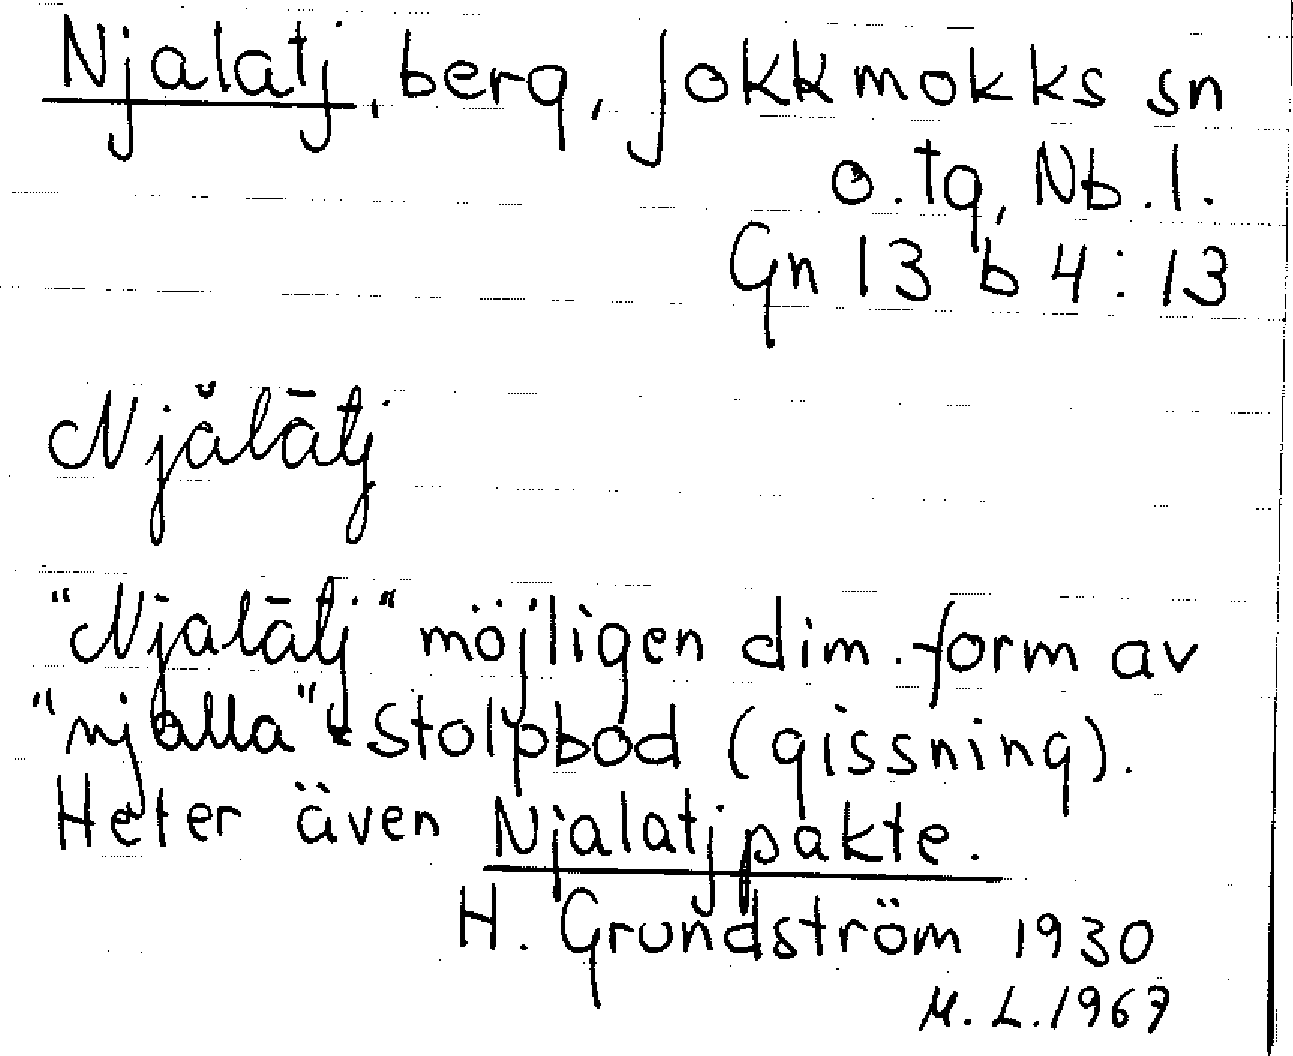 Njalatj, berg, Jokkmokks sn
o. tg, Nb. l.
Gn 13 b 4:13
Njălātj
"Njalātj" möjligen dim. form av
"njalla" = stolpbod (gissning).
Heter även Njalatjpakte.
H. Grundström 1930
M. L. 1967